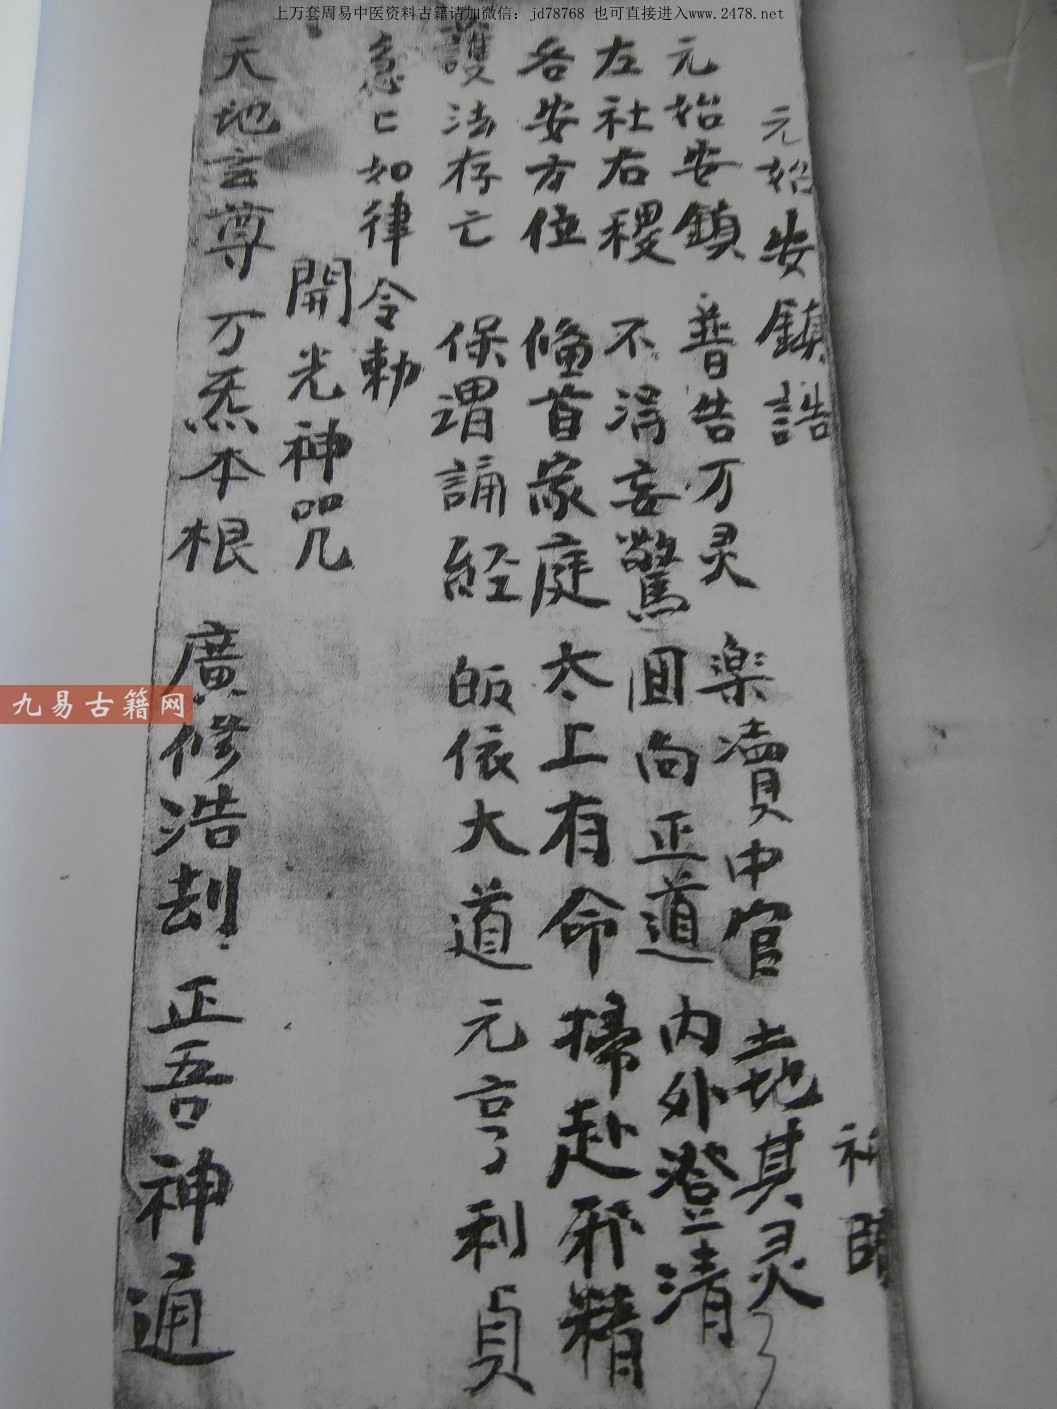 上万套周易中医资料古籍请加微信：jd78768 也可直接进入www.2478.net
元始安鎮誥
元始安鎮 普告万灵 楽凟中官 土地其灵
左社右稷 不淂妄驚 囬向正道 内外澄清
各安方位 偹首家庭 太上有命 掃赴邪精
護法存亡 保谓誦經 皈依大道 元亨利貞
急匕如律令勅
開光神咒
天地玄尊 万炁本根 廣修浩刼 正吾神通
九易古籍网